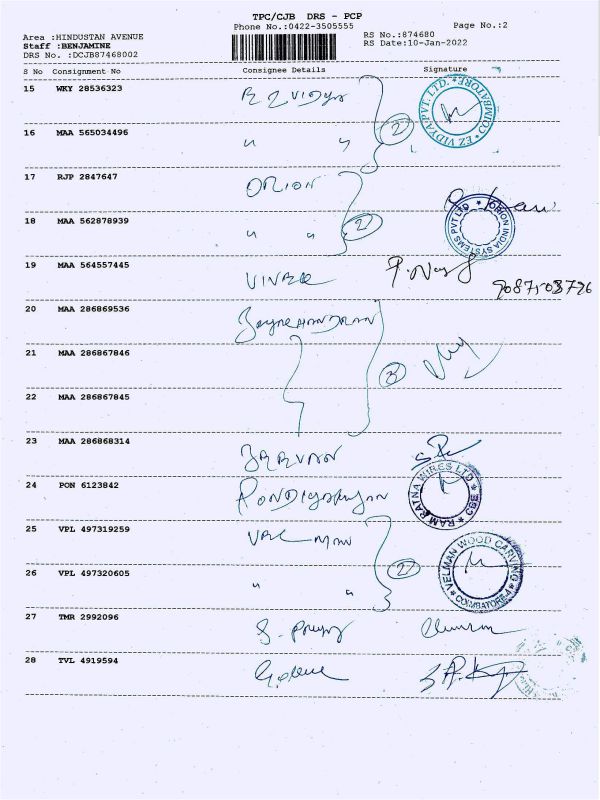 TPC/CJB DRS - PCP
Phone No.:0422-3505555
Page No.:2
Area :HINDUSTAN AVENUE
Staff :BENJAMINE
DRS No. :DCJB87468002
RS No.:874680
RS Date:10-Jan-2022
S No Consignment No Consignee Details Signature
15 WKY 28536323 EZ VIDYA
2
EZ VIDYA PVT. LTD. * COIMBATORE *
16 MAA 565034496 " "
17 RJP 2847647 ORION
2
ORION INDIA SYSTEMS PVT LTD *
18 MAA 562878939 " "
19 MAA 564557445 VIVEK
9087503726
20 MAA 286869536
21 MAA 286867846
3
22 MAA 286867845
23 MAA 286868314
24 PON 6123842
RAM RATNA WIRES LTD * CBE *
25 VPL 497319259 VELMAN
2
VELMAN WOOD CARVING * COIMBATORE-4 *
26 VPL 497320605 " "
27 TMR 2992096
28 TVL 4919594